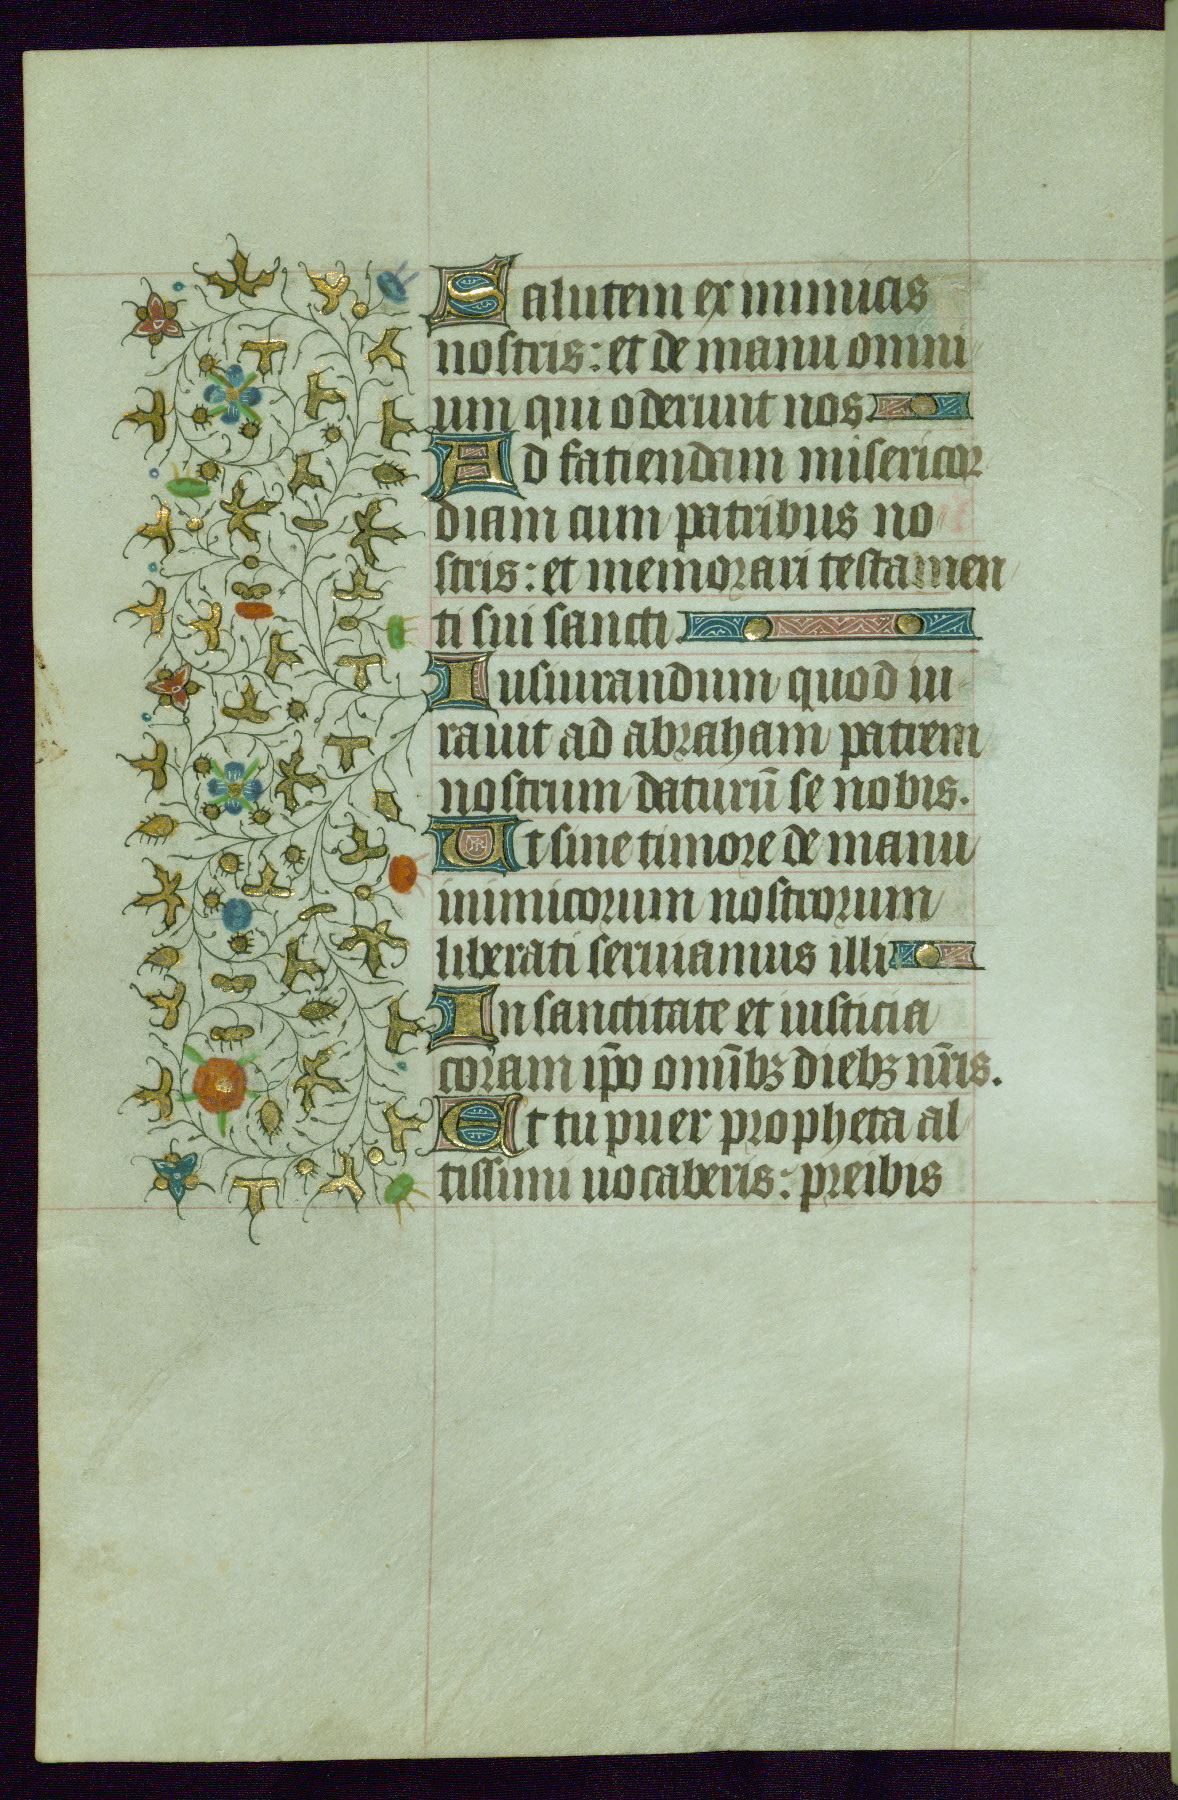 Salutem ex inimicis
nostris: et de manu omni
um qui oderunt nos
Ad fatiendam misericor
diam cum patribus no
stris: et memorari testamen
ti sui sancti
Iusiurandum quod iu
rauit ad abraham patrem
nostrum daturū se nobis.
Ut sine timore de manu
inimicorum nostrorum
liberati seruiamus illi
In sanctitate et iusticia
coram ip̄o omībꝫ diebꝫ nr̄is.
Et tu puer propheta al
tissimi uocaberis: preibis